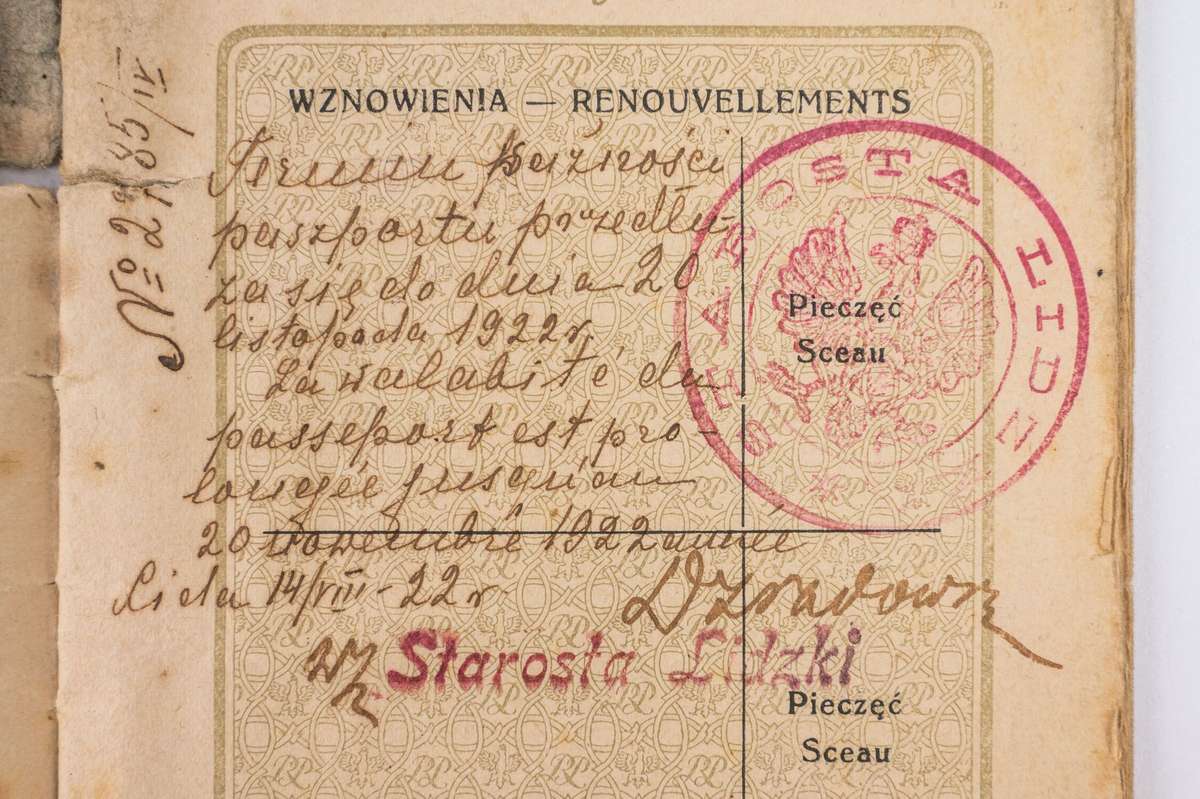 WZNOWIENIA — RENOUVELLEMENTS
Termin ważności
paszportu przedłu-
za się do dnia 20
listopada 1922 r.
La walabité du
passeport est pro-
longée jusqu'au
20 Novembre 1922 année
Lida 14/VIII - 22 r
Starosta Lidzki
wz
Pieczęć
Sceau
STAROSTA LIDZKI
Pieczęć
Sceau